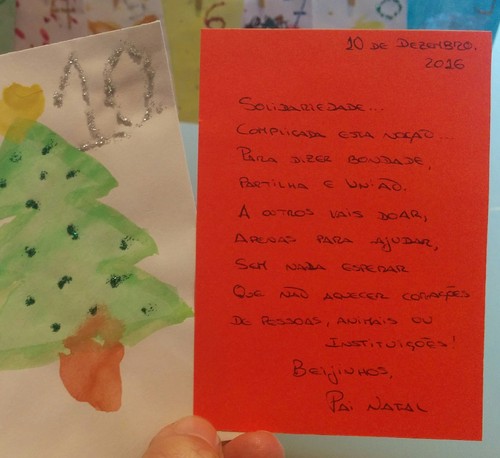 10
10 de Dezembro.
2016
Solidariedade...
Complicada esta noção...
Para dizer bondade,
Partilha e União.
A outros vais doar,
Apenas para ajudar,
Sem nada esperar
Que não aquecer corações
de pessoas, animais ou
Instituições!
Beijinhos,
Pai Natal